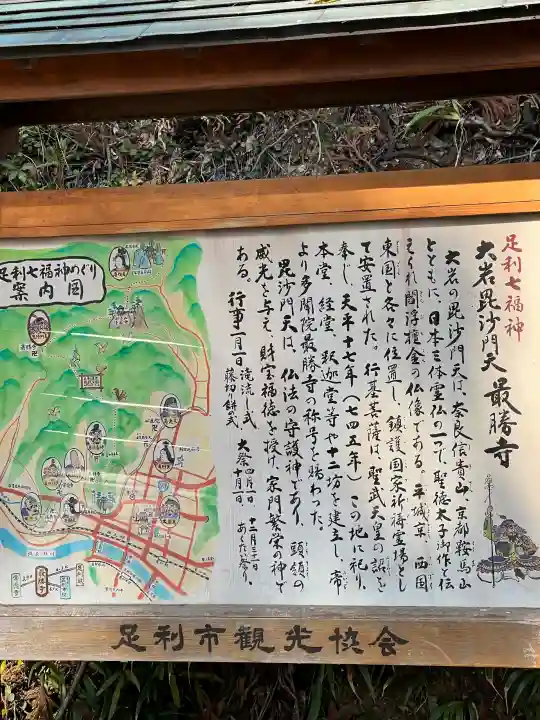 足利七福神
大岩毘沙門天 最勝寺
大岩の毘沙門天は、奈良信貴山、京都鞍馬山
とともに、日本三体霊仏の一つで、聖徳太子御作と伝
えられ閻浮檀金の仏像である。平城京、西国
東国と各々に位置し、鎮護国家祈祷霊場とし
て安置された。行基菩薩は、聖武天皇の詔を
奉じ、天平十七年(七四五年)この地に祀り、
本堂、経堂、釈迦堂等や十二坊を建立し、帝
より多聞院最勝寺の称号を賜わった。
毘沙門天は、仏法の守護神であり、頭領の
威光を与え、財宝福徳を授け、家門繁栄の神で
ある。
行事 一月一日 滝流し式
藤切り餅の式
大祭 四月一日
十月一日
十二月三十一日
あくたい祭り
足利七福神めぐり
案内図
足利市観光協会